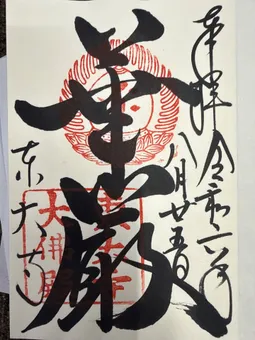 奉拝 令和二年
八月廿五日
華厳
東大寺
東大寺
大佛殿